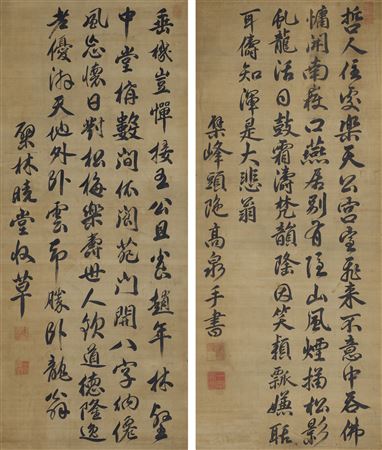 哲人住處樂天公宮室飛來不意中呑佛
慵開南嶽口燕居別有隱山風煙描松影
虬龍活日鼓霜濤梵韻隆因笑顆瓢嫌聒
耳儔知渾是大悲翁
檗峰頭陀高泉手書
垂機豈憚接王公且喜趙年林壑
中堂搆數間依閬苑門開八字納僊
風忘懷日對松梅樂壽世人欽道德隆逸
老優游天地外卧雲却勝卧龍翁
檗林曉堂收草